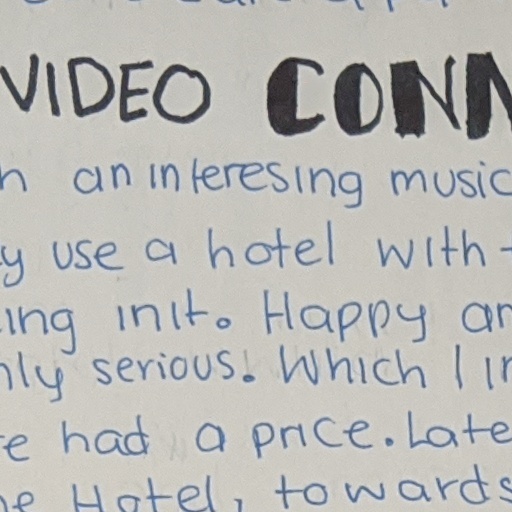 VIDEO CONN
an interesing music
y use a hotel with
ing init. Happy an
nly serious. Which I in
e had a price. Late
he Hotel, towards